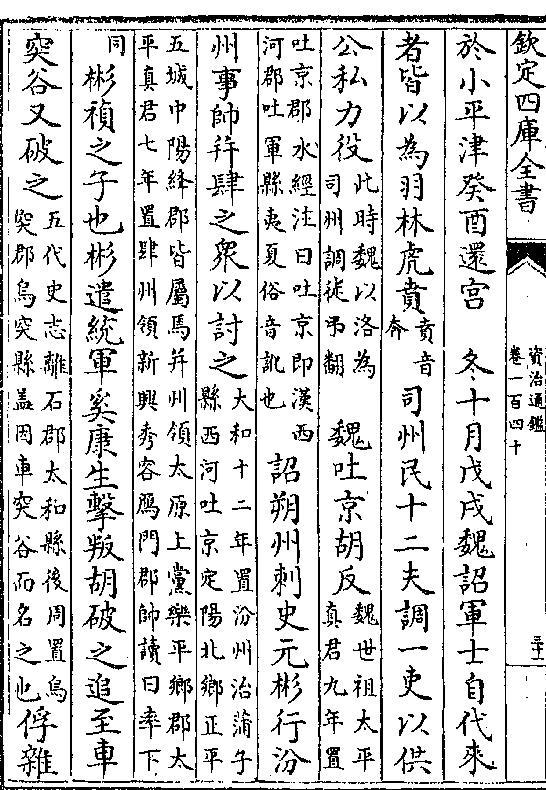 欽定四庫全書
資治通鑑
卷一百四十
於小平津癸酉還宮　冬十月戊戌魏詔軍士自代來
者皆以為羽林虎賁賁音奔司州民十二夫調一吏以供
公私力役此時魏以洛為司州調徒弔翻　魏吐京胡反魏世祖太平真君九年置
吐京郡水經注曰吐京即漢西河郡吐軍縣夷夏俗音訛也詔朔州刺史元彬行汾
州事帥幷肆之衆以討之大和十二年置汾州治蒲子縣西河吐京定陽北鄉正平
五城中陽絳郡皆屬焉幷州領太原上黨樂平鄉郡太平真君七年置肆州領新興秀容鴈門郡帥讀曰率下
同彬禎之子也彬遣統軍奚康生擊叛胡破之追至車
突谷又破之五代史志離石郡太和縣後周置烏突郡烏突縣蓋因車突谷而名之也俘雜